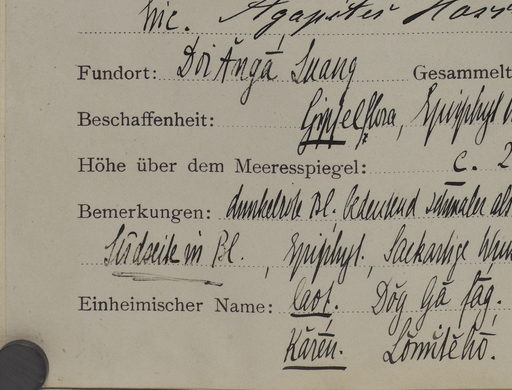 hic. Agapetes Hoss
Fundort: Doi Angá Luang Gesammelt
Beschaffenheit: Gipfelflora, Epiphyt
Höhe über dem Meeresspiegel: c. 2
Bemerkungen: dunkelrote Bl. bedeutend schmaler als
Südseite in Bl., Epiphyt., Sackartige
Einheimischer Name: laot. Dŏg Gā
Káren.